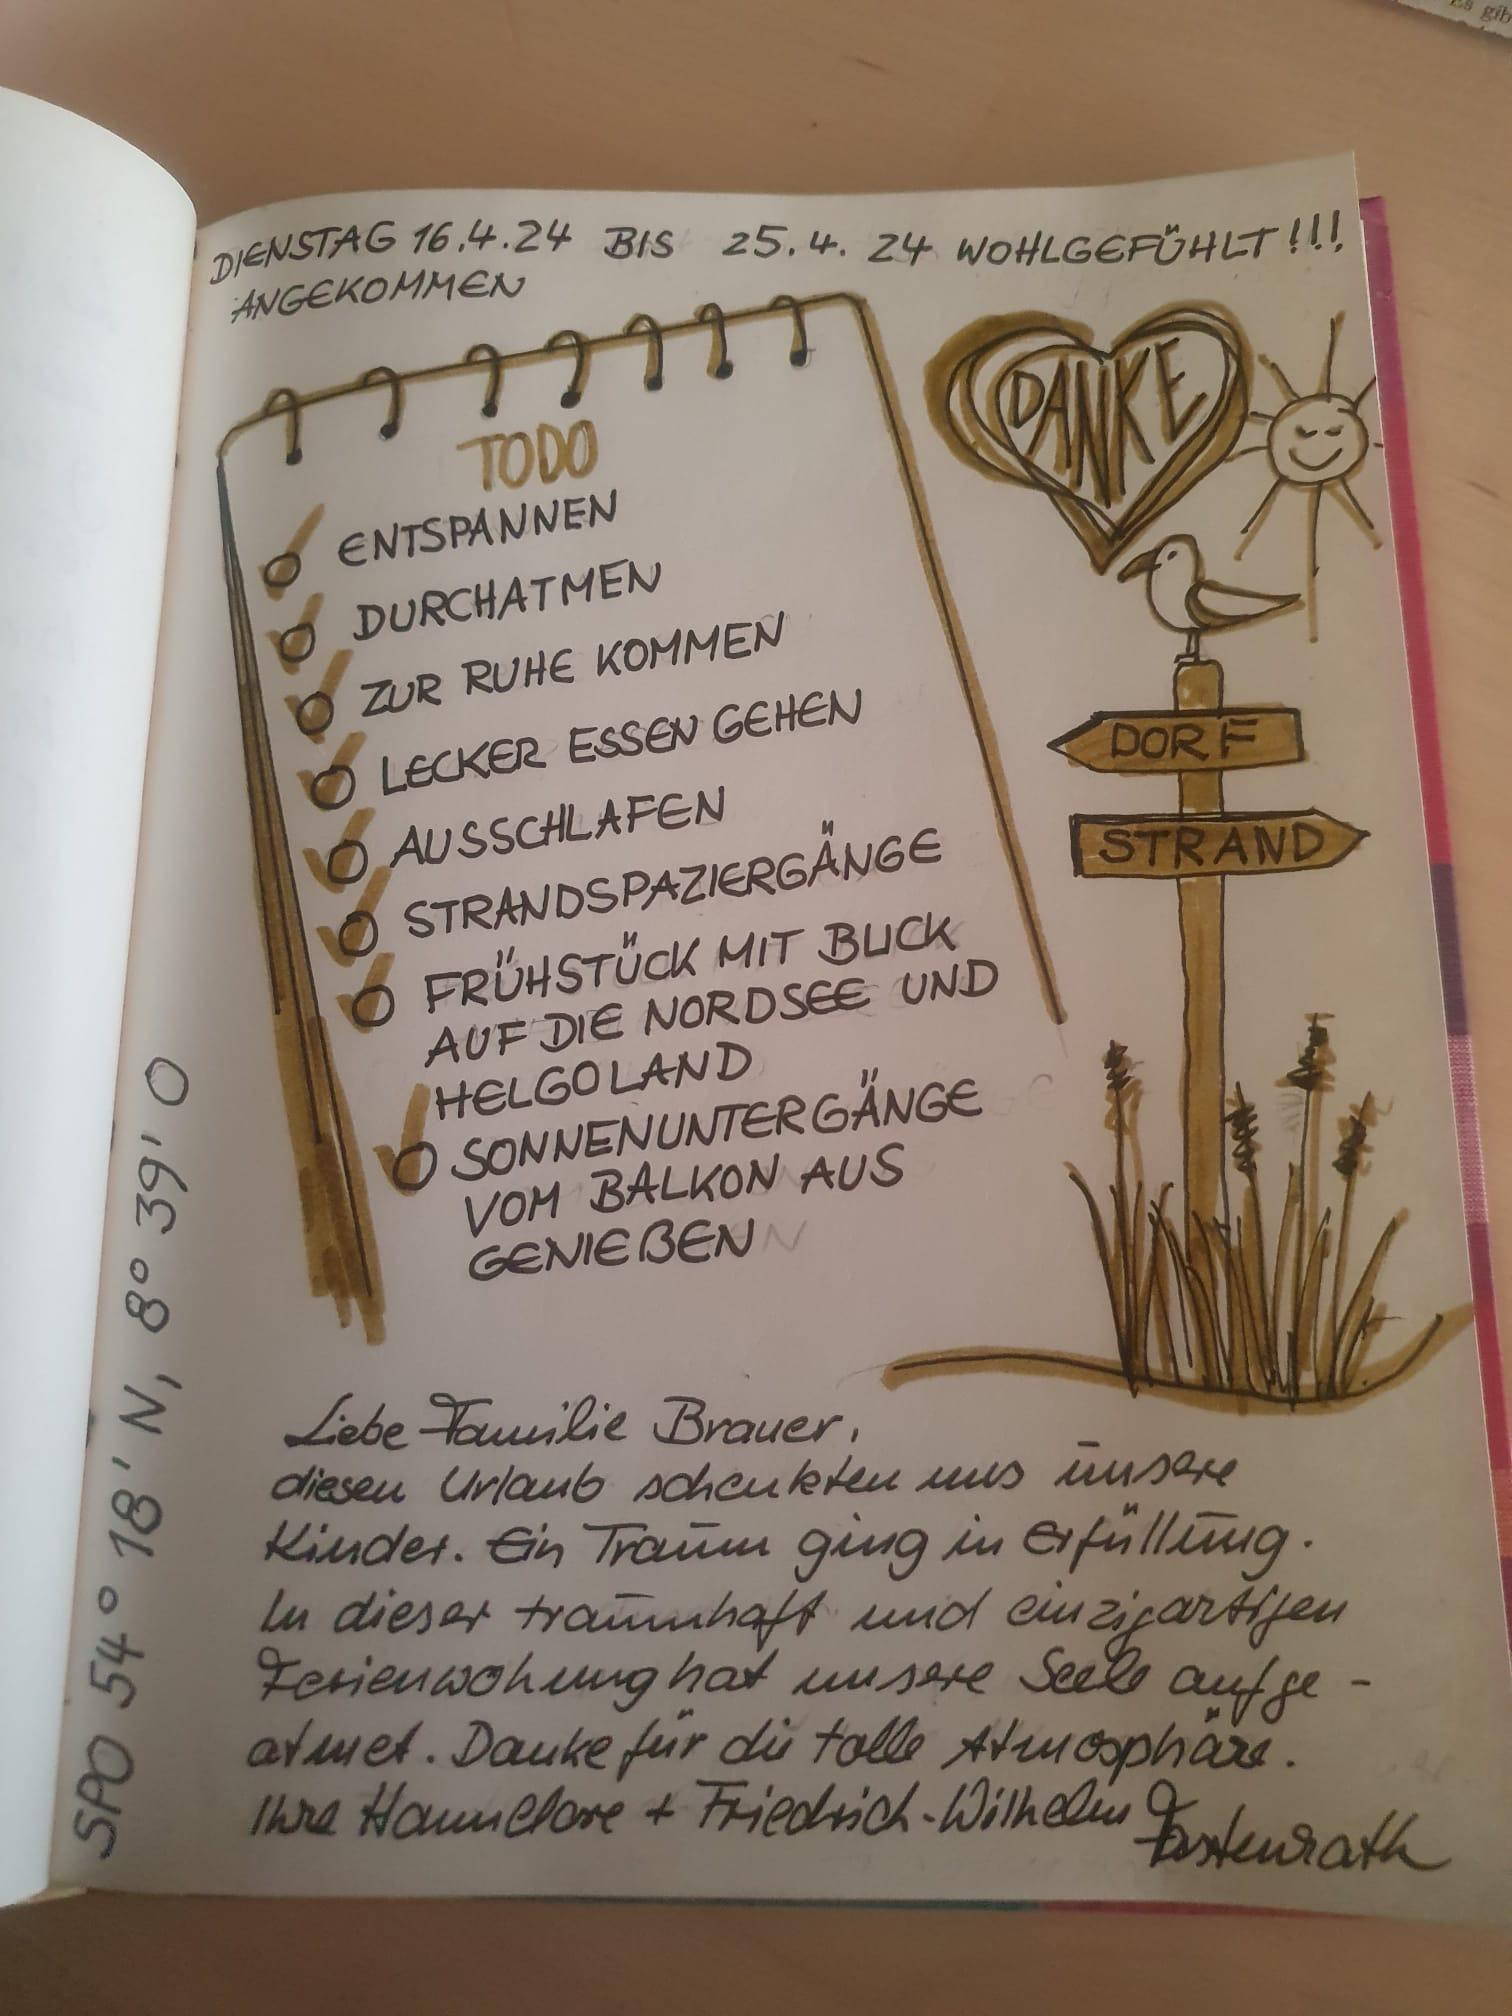 DIENSTAG 16.4.24 BIS 25.4.24 WOHLGEFÜHLT!!!
ANGEKOMMEN
TODO
ENTSPANNEN
DURCHATMEN
ZUR RUHE KOMMEN
LECKER ESSEN GEHEN
AUSSCHLAFEN
STRANDSPAZIERGÄNGE
FRÜHSTÜCK MIT BLICK
AUF DIE NORDSEE UND
HELGOLAND
SONNENUNTERGÄNGE
VOM BALKON AUS
GENIEßEN
DANKE
DORF
STRAND
SPO 54° 18' N, 8° 39' O
Liebe Familie Brauer,
diesen Urlaub schenkten uns unsere
Kinder. Ein Traum ging in Erfüllung.
In dieser traumhaft und einzigartigen
Ferienwohnung hat unsere Seele aufge-
atmet. Danke für die tolle Atmosphäre.
Ihre Hannelore + Friedrich-Wilhelm
Fastenrath
Es gib